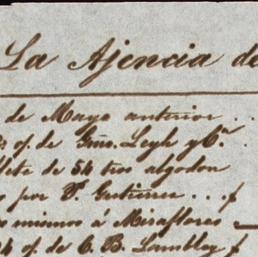 La Ajencia de
de Mayo anterior . . .
of. de Gmo. Leigh y Ca.
flete de 54 tros algodon
por V. Gutierrez . . . f
mismos á Miraflores
of. de C. B. Lambley f